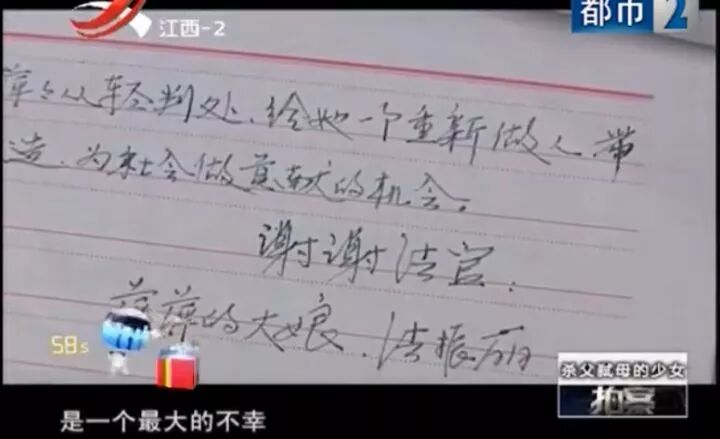 江西-2
都市2
从轻判处、给她一个重新做人
造、为社会做贡献的机会。
谢谢法官.
的大娘.
振丽
58s
杀父弑母的少女
拍案
是一个最大的不幸